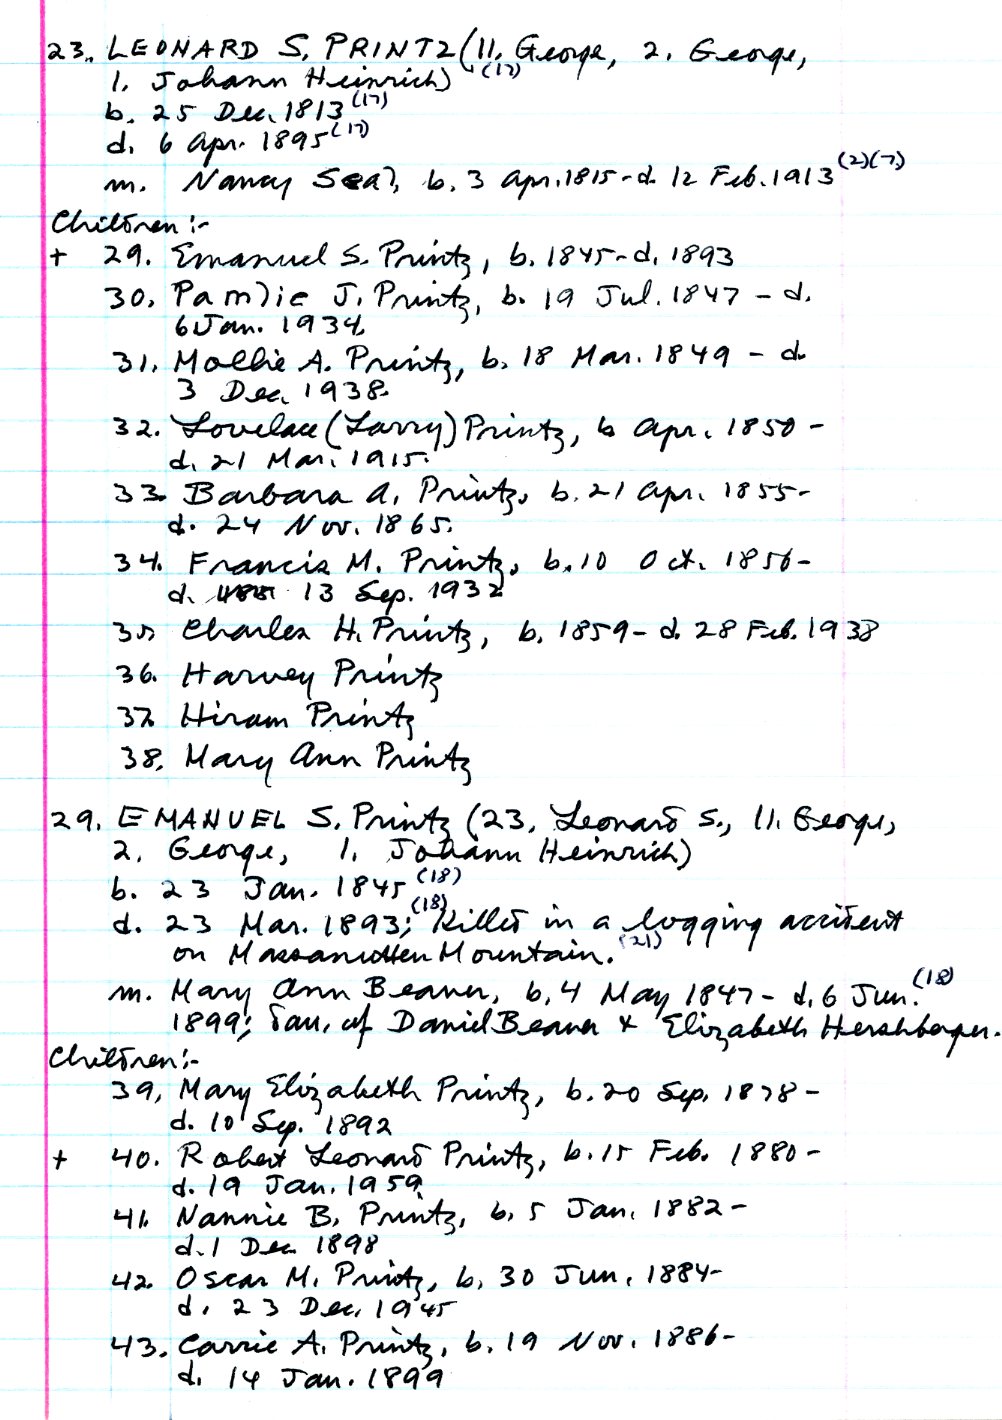 23. LEONARD S. PRINTZ (11. George, 2. George,
1. Johann Heinrich) (17)
b. 25 Dec. 1813 (17)
d. 6 Apr. 1895 (17)
m. Nancy Seal, b. 3 Apr. 1815 - d. 12 Feb. 1913 (2)(7)
Children:-
+ 29. Emanuel S. Printz, b. 1845 - d. 1893
30. Pamlie J. Printz, b. 19 Jul. 1847 - d.
6 Jan. 1934.
31. Mollie A. Printz, b. 18 Mar. 1849 - d.
3 Dec. 1938.
32. Lovelace (Larry) Printz, b Apr. 1850 -
d. 21 Mar. 1915.
33. Barbara A. Printz, b. 21 Apr. 1855 -
d. 24 Nov. 1865.
34. Francis M. Printz, b. 10 Oct. 1856 -
d. 13 Sep. 1932
35 Charles H. Printz, b. 1859 - d. 28 Feb. 1938
36. Harvey Printz
37. Hiram Printz
38. Mary Ann Printz
29. EMANUEL S. Printz (23. Leonard S., 11. George,
2. George, 1. Johann Heinrich)
b. 23 Jan. 1845 (18)
d. 23 Mar. 1893; (18) Killed in a logging accident
on Massanutten Mountain. (21)
m. Mary Ann Beaver, b. 4 May 1847 - d. 6 Jun. (18)
1899; dau. of Daniel Beaver & Elizabeth Hershberger.
Children:-
39. Mary Elizabeth Printz, b. 20 Sep. 1878 -
d. 10 Sep. 1892
+ 40. Robert Leonard Printz, b. 15 Feb. 1880 -
d. 19 Jan. 1959
41. Nannie B. Printz, b. 5 Jan. 1882 -
d. 1 Dec. 1898
42. Oscar M. Printz, b. 30 Jun. 1884 -
d. 23 Dec. 1945
43. Carrie A. Printz, b. 19 Nov. 1886 -
d. 14 Jan. 1899